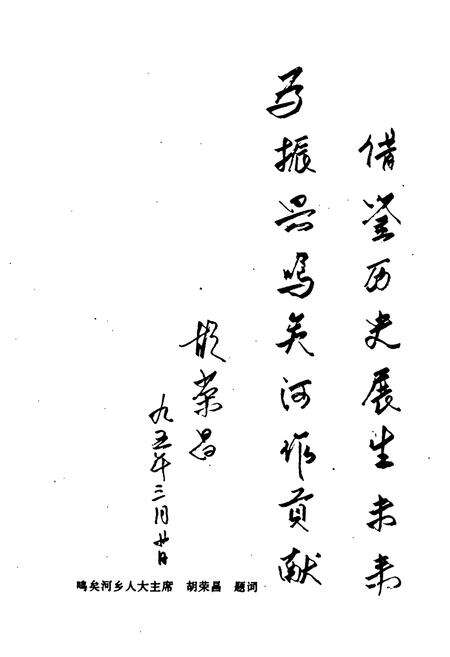 借鉴历史展望未来
为振兴鸣矣河作贡献
胡荣昌
九五年三月廿日
鸣矣河乡人大主席 胡荣昌 题词